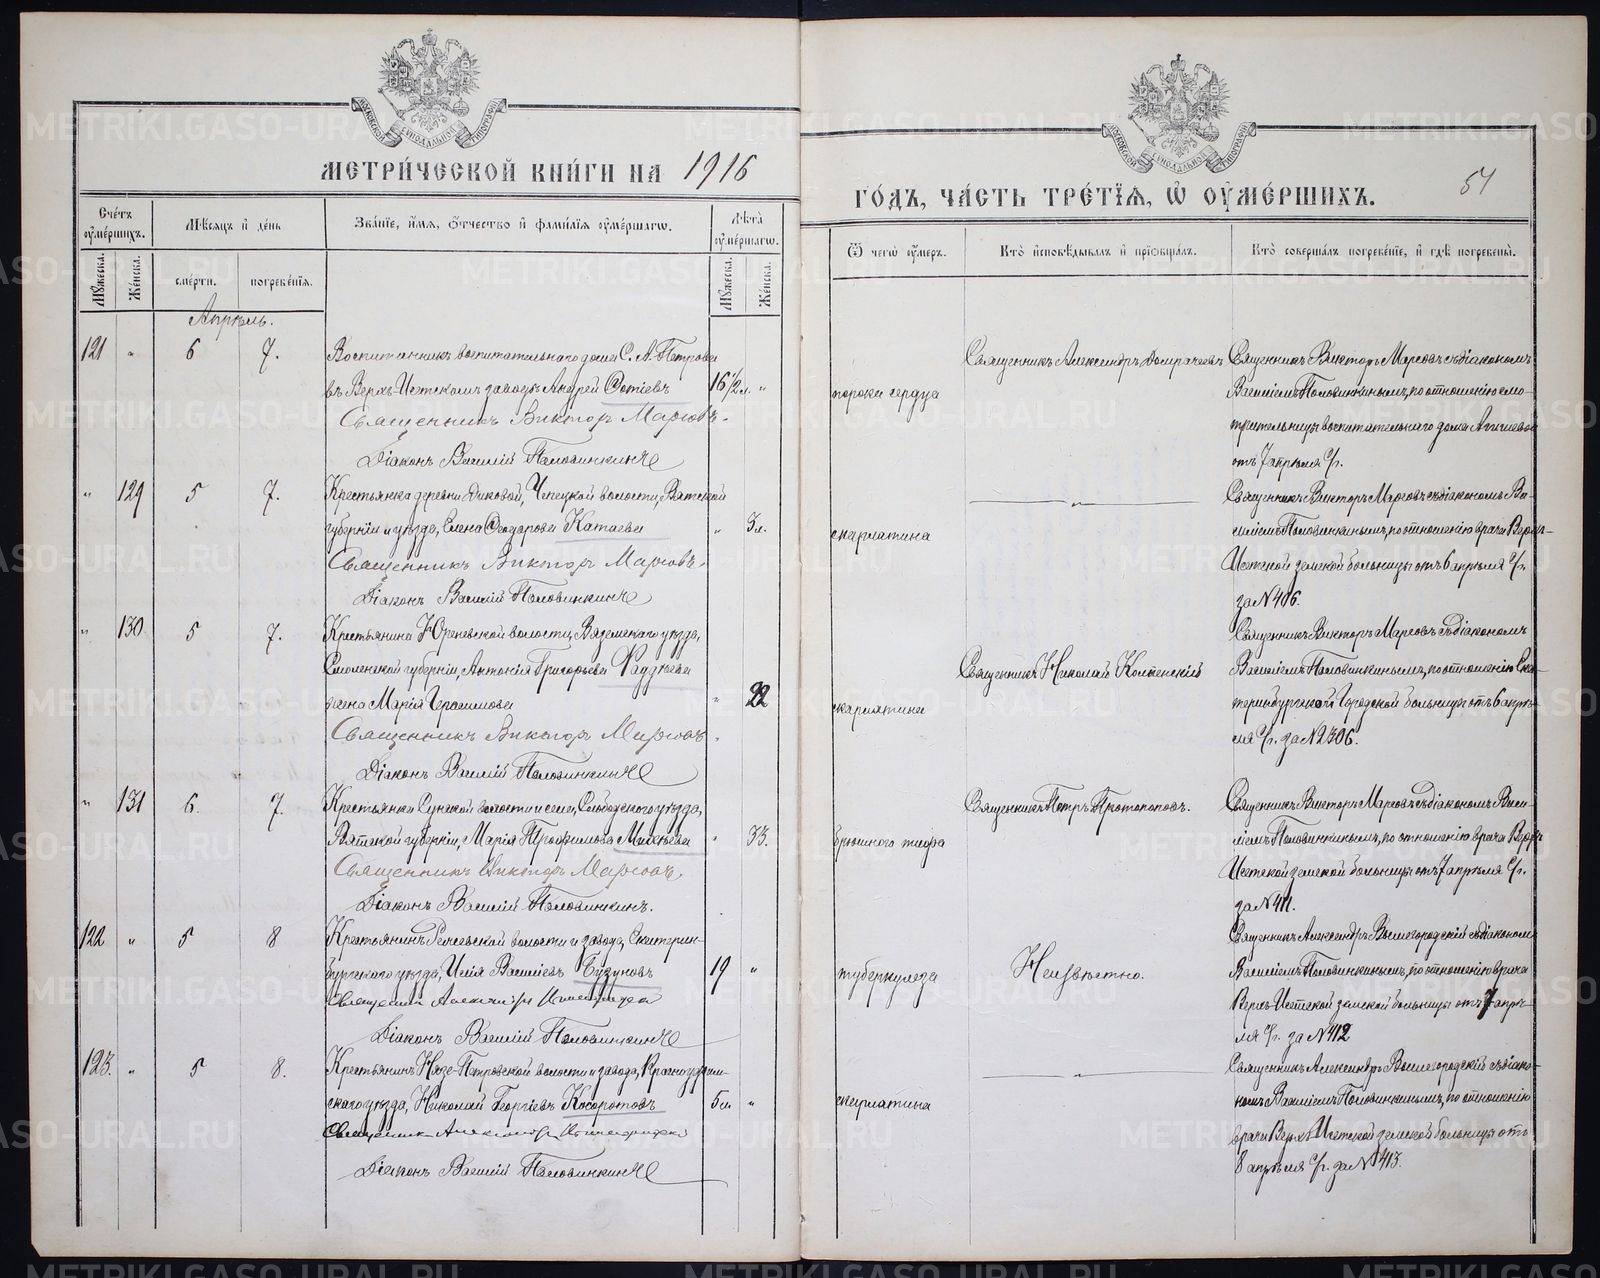 МЕТРИ́ЧЕСКОЙ КНИ́ГИ НА 1916
ГО́ДЪ, ЧА́СТЬ ТРЕ́ТЇѦ, Ѡ҆ ОУМЕ́РШИХЪ.
54
Сче́тъ оумершихъ.
Мѣсяцъ и день
Зва́нїе, и́мѧ, о́тчество и фами́лїѧ оуме́ршагѡ.
Лѣта оуме́ршагѡ.
Ѿ чегѡ оу́меръ.
Кто̀ исповѣ́дывалъ и прїѡбща́лъ.
Кто̀ соверша́лъ погребе́нїе, и гдѣ погребены̀.
Мужеска.
Женска.
смерти.
погребе́нїѧ.
Мужеска.
Женска.
Апрѣль.
121 " 6 7.
Воспитанникъ воспитательнаго дома С. А. Петрова
въ Верхъ-Исетскомъ заводѣ Андрей Фотіевъ
Священникъ Викторъ Марковъ.
Діаконъ Василій Половинкинъ
16 1/2 л. "
порока сердца
Священникъ Александръ
Священникъ Викторъ Марковъ съ діакономъ
Василіемъ Половинкинымъ, по отношенію смо-
трительницы воспитательнаго дома
отъ 7 апрѣля с/г.
" 129 5 7.
Крестьянка деревни Диковой, Чепецкой волости, Вятской
губерніи и уѣзда, Елена Ѳеодорова Катаева
Священникъ Викторъ Марковъ.
Діаконъ Василій Половинкинъ
" 3 л.
скарлатина
"
Священникъ Викторъ Марковъ съ діакономъ Ва-
силіемъ Половинкинымъ, по отношенію врача Верхъ-
Исетской земской больницы отъ 6 апрѣля с/г.
за № 406.
" 130 5 7.
Крестьянина Юреневской волости, Вяземскаго уѣзда,
Смоленской губерніи, Антонія Григорьева Фаддѣева
жена Марія Герасимова
Священникъ Викторъ Марковъ.
Діаконъ Василій Половинкинъ
" 22
скарлатина
Священникъ Николай
Священникъ Викторъ Марковъ съ діакономъ
Василіемъ Половинкинымъ, по отношенію Ека-
теринбургской Городской больницы отъ 6 апрѣ-
ля с/г. за № 2306.
" 131 6. 7.
Крестьянка Сунской волости и села, Слободского уѣзда,
Вятской губерніи, Марія Трофимова Михѣева
Священникъ Викторъ Марковъ.
Діаконъ Василій Половинкинъ.
" 33.
брюшного тифа
Священникъ Петръ Протопоповъ.
Священникъ Викторъ Марковъ съ діакономъ Васи-
ліемъ Половинкинымъ, по отношенію врача Верхъ-
Исетской земской больницы отъ 7 апрѣля с/г.
за № 411.
122 " 5 8
Крестьянинъ Режевской волости и завода, Екатерин-
бургскаго уѣзда, Илія Василіевъ Бузуновъ
Священникъ Александръ Вышегородскій
Діаконъ Василій Половинкинъ
19 "
туберкулеза
Неизвѣстно.
Священникъ Александръ Вышегородскій съ діакономъ
Василіемъ Половинкинымъ, по отношенію врача
Верхъ-Исетской земской больницы отъ 7 апрѣ-
ля с/г. за № 412
123. " 5 8.
Крестьянинъ Нязе-Петровской волости и завода, Красноуфим-
скаго уѣзда, Николай Георгіевъ Косоротовъ
Священникъ Александръ Вышегородскій
Діаконъ Василій Половинкинъ
5 л. "
скарлатина
"
Священникъ Александръ Вышегородскій съ діако-
номъ Василіемъ Половинкинымъ, по отношенію
врача Верхъ-Исетской земской больницы отъ
8 апрѣля с/г. за № 413.